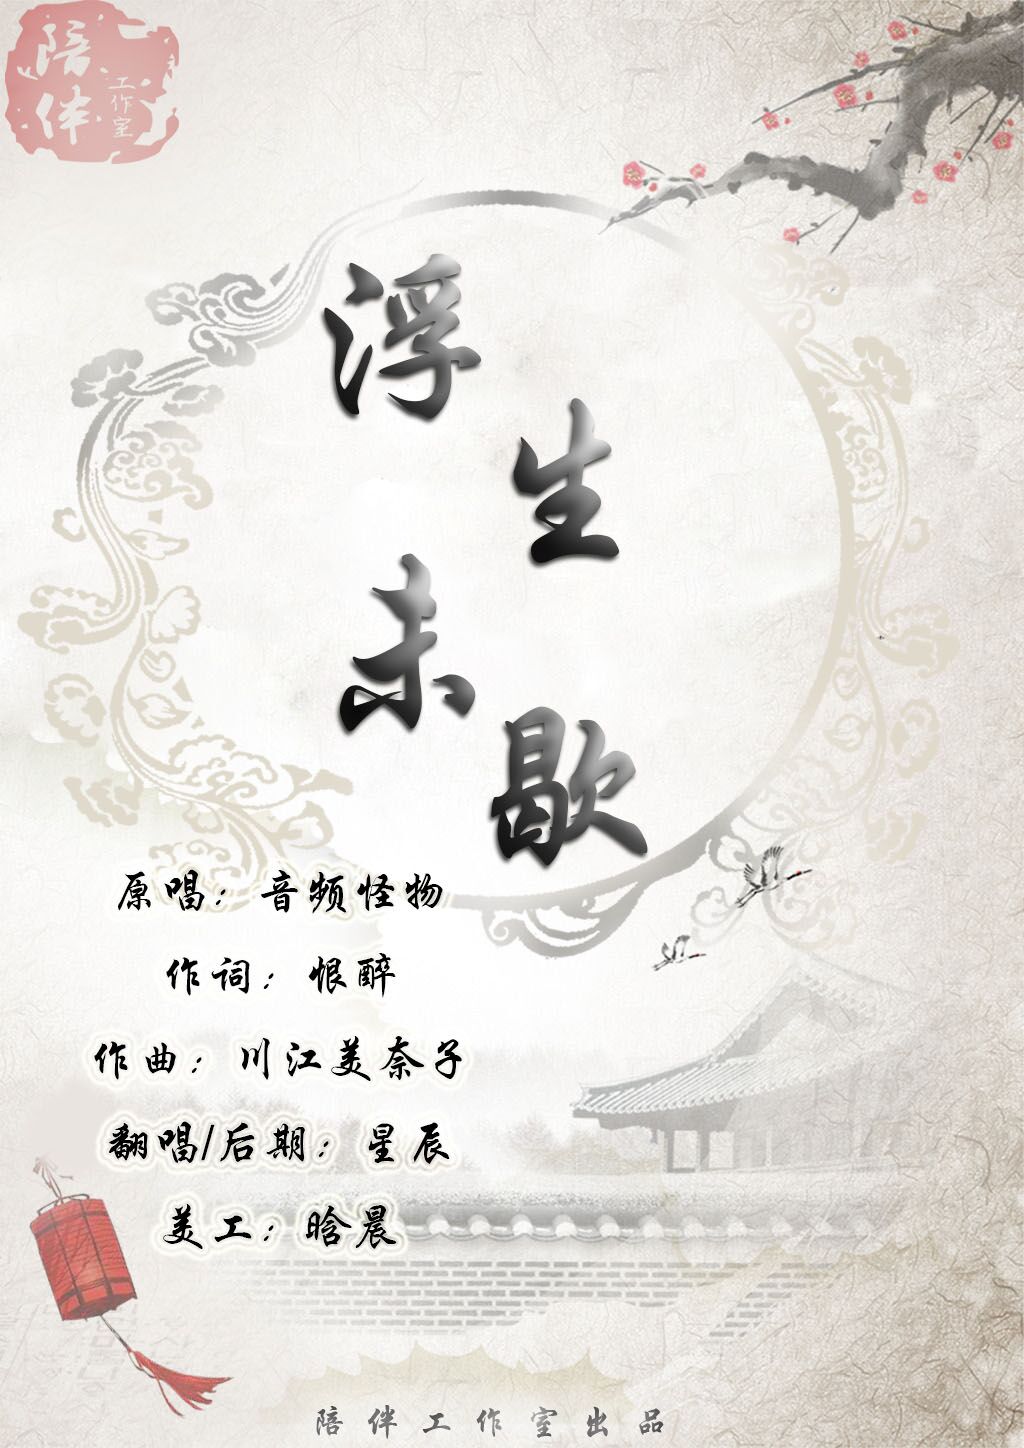 陪伴
工作室
浮生未歇
原唱：音频怪物
作词：恨醉
作曲：川江美奈子
翻唱/后期：星辰
美工：晗晨
陪伴工作室出品